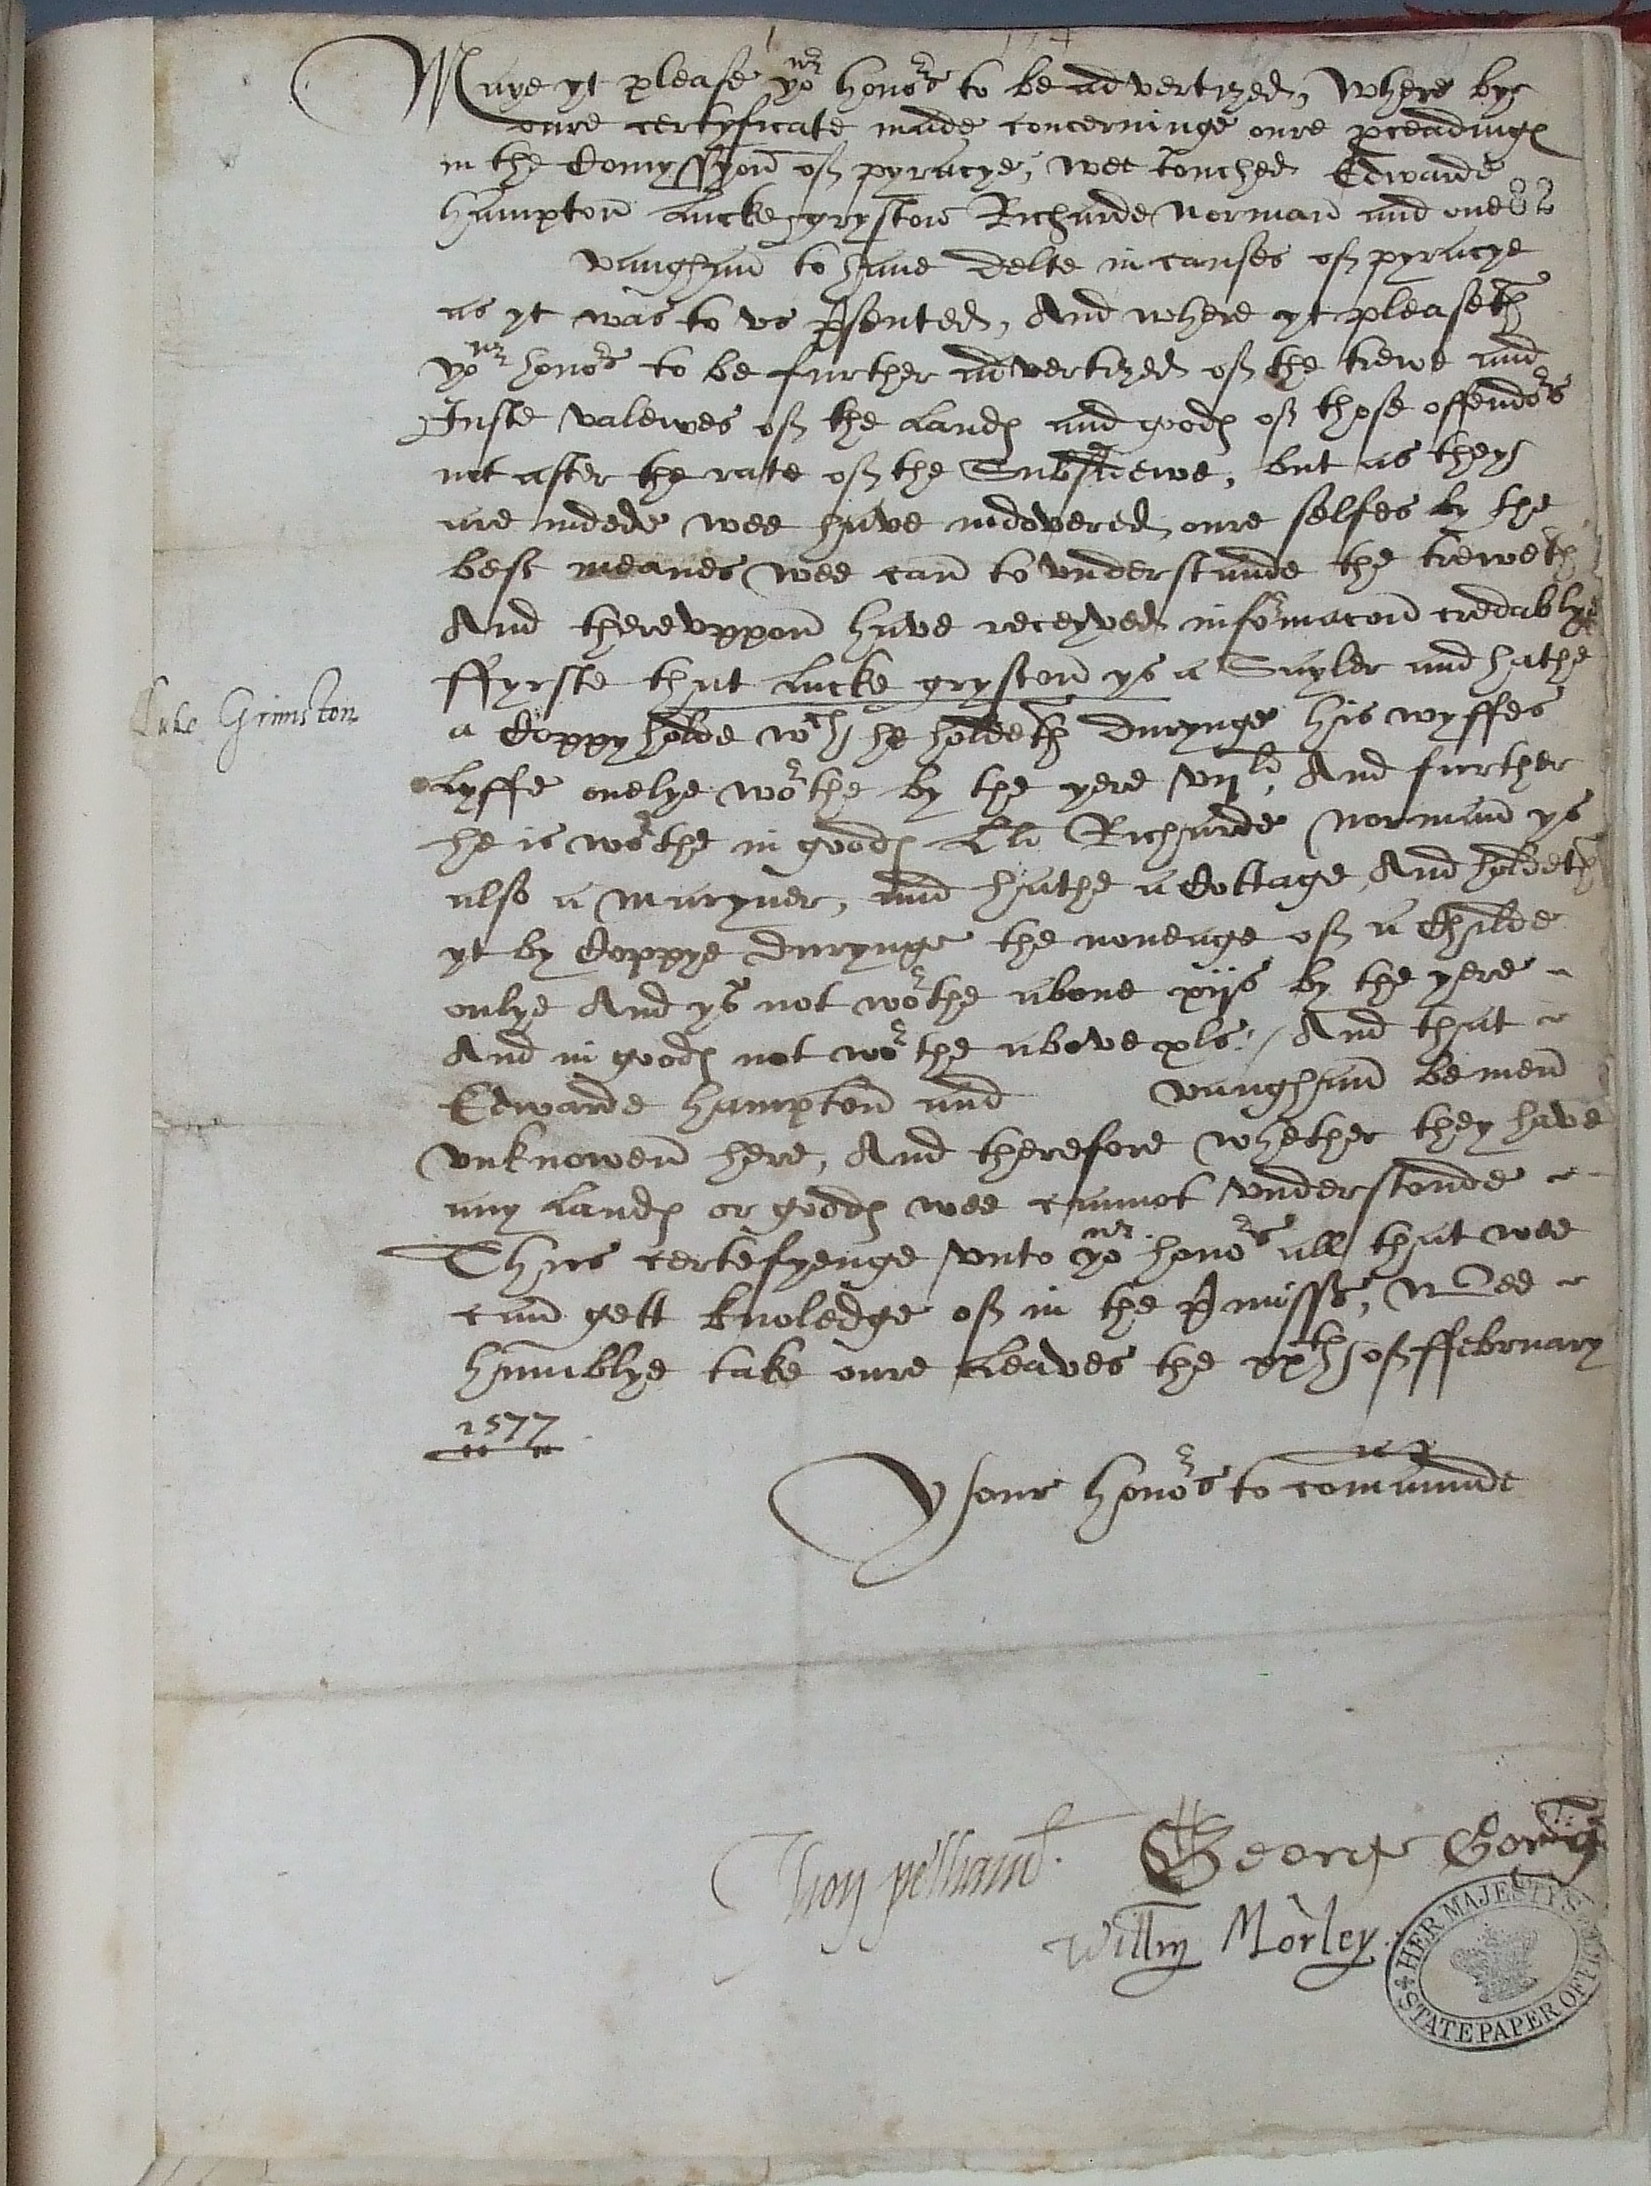 Maye yt please yor honors to be advertyzed, Where by
oure certyficate made concerninge oure pceadings
in the Comyssyon of pyracye, wee touched Edwarde
Hampton Lucke gryston Richarde Norman and one
Vaughan to have delte in causes of pyracye
as yt was to vs psented, And where yt pleaseth
yor honors to be further advertyzed of the trewe and
Juste valewes of the Lands and goods of those offendors
not after the rate of the Subsedewe, but as they
are indede wee have indevered oure selfes by the
best meanes wee can to vnderstande the treweth
And therevppon have receyved informacon credablye
ffyrste that Lucke gryston ys a Sayler and hathe
Luke Grinston
a Coppyholde wch he holdeth durynge his wyffes
Lyffe onelye worthe by the yere vijli, And further
he is worthe in goods Lli Richarde Norman ys
also a maryner, and hathe a Cottage And holdeth
yt by Coppye durynge the noneage of a Childe
onlye And ys not worthe above xijs by the yere
And in goods not worthe above xls, And that
Edwarde Hampton and Vaughan be men
vnknowen here, And therefore whether they have
any Lands or goods wee cannot vnderstonde
Thus certefyenge vnto yor honors all that wee
can gett knoledge of in the pmisses, Wee
humblye take oure Leaves the xxth of ffebruary
1577
Your honors to commande
Thoms pelham George Goring
Willm Morley
HER MAJESTY'S STATE PAPER OFFICE